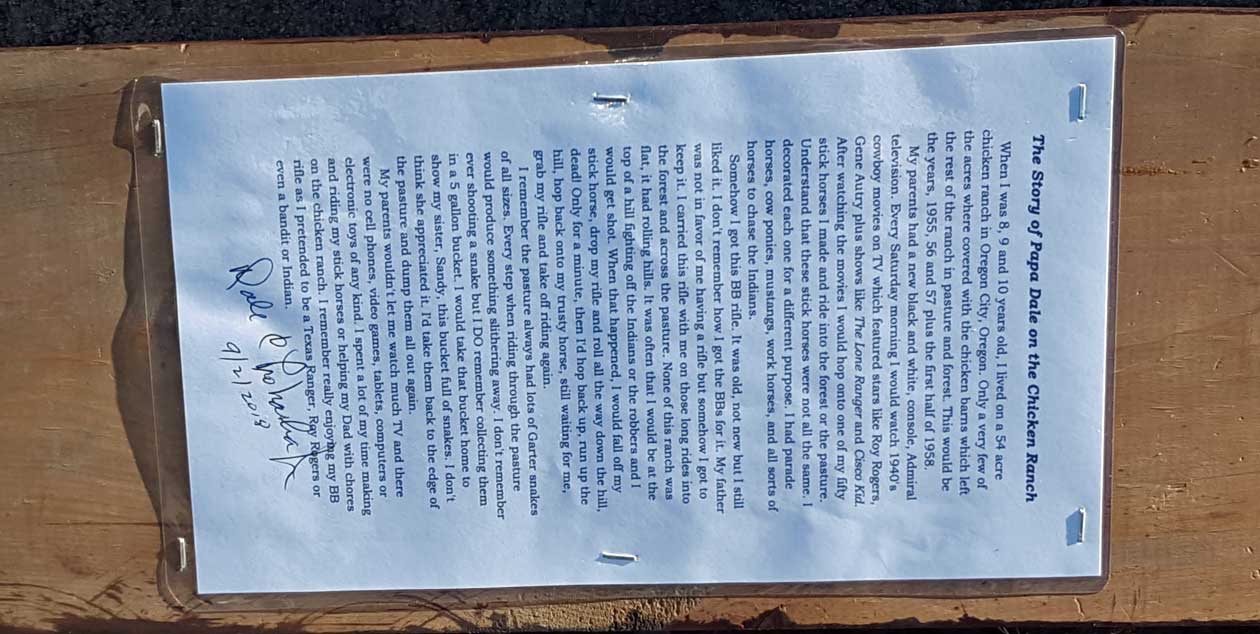 The Story of Papa Dale on the Chicken Ranch
When I was 8, 9 and 10 years old, I lived on a 54 acre
chicken ranch in Oregon City, Oregon. Only a very few of
the acres where covered with the chicken barns which left
the rest of the ranch in pasture and forest. This would be
the years, 1955, 56 and 57 plus the first half of 1958.
My parents had a new black and white, console, Admiral
television. Every Saturday morning I would watch 1940's
cowboy movies on TV which featured stars like Roy Rogers,
Gene Autry plus shows like The Lone Ranger and Cisco Kid.
After watching the movies I would hop onto one of my fifty
stick horses I made and ride into the forest or the pasture.
Understand that these stick horses were not all the same. I
decorated each one for a different purpose. I had parade
horses, cow ponies, mustangs, work horses, and all sorts of
horses to chase the Indians.
Somehow I got this BB rifle. It was old, not new but I still
liked it. I don't remember how I got the BBs for it. My father
was not in favor of me having a rifle but somehow I got to
keep it. I carried this rifle with me on those long rides into
the forest and across the pasture. None of this ranch was
flat, it had rolling hills. It was often that I would be at the
top of a hill fighting off the Indians or the robbers and I
would get shot. When that happened, I would fall off my
stick horse, drop my rifle and roll all the way down the hill,
dead! Only for a minute, then I'd hop back up, run up the
hill, hop back onto my trusty horse, still waiting for me,
grab my rifle and take off riding again.
I remember the pasture always had lots of Garter snakes
of all sizes. Every step when riding through the pasture
would produce something slithering away. I don't remember
ever shooting a snake but I DO remember collecting them
in a 5 gallon bucket. I would take that bucket home to
show my sister, Sandy, this bucket full of snakes. I don't
think she appreciated it. I'd take them back to the edge of
the pasture and dump them all out again.
My parents wouldn't let me watch much TV and there
were no cell phones, video games, tablets, computers or
electronic toys of any kind. I spent a lot of my time making
and riding my stick horses or helping my Dad with chores
on the chicken ranch. I remember really enjoying my BB
rifle as I pretended to be a Texas Ranger, Roy Rogers or
even a bandit or Indian.
Dale
9/2/2018